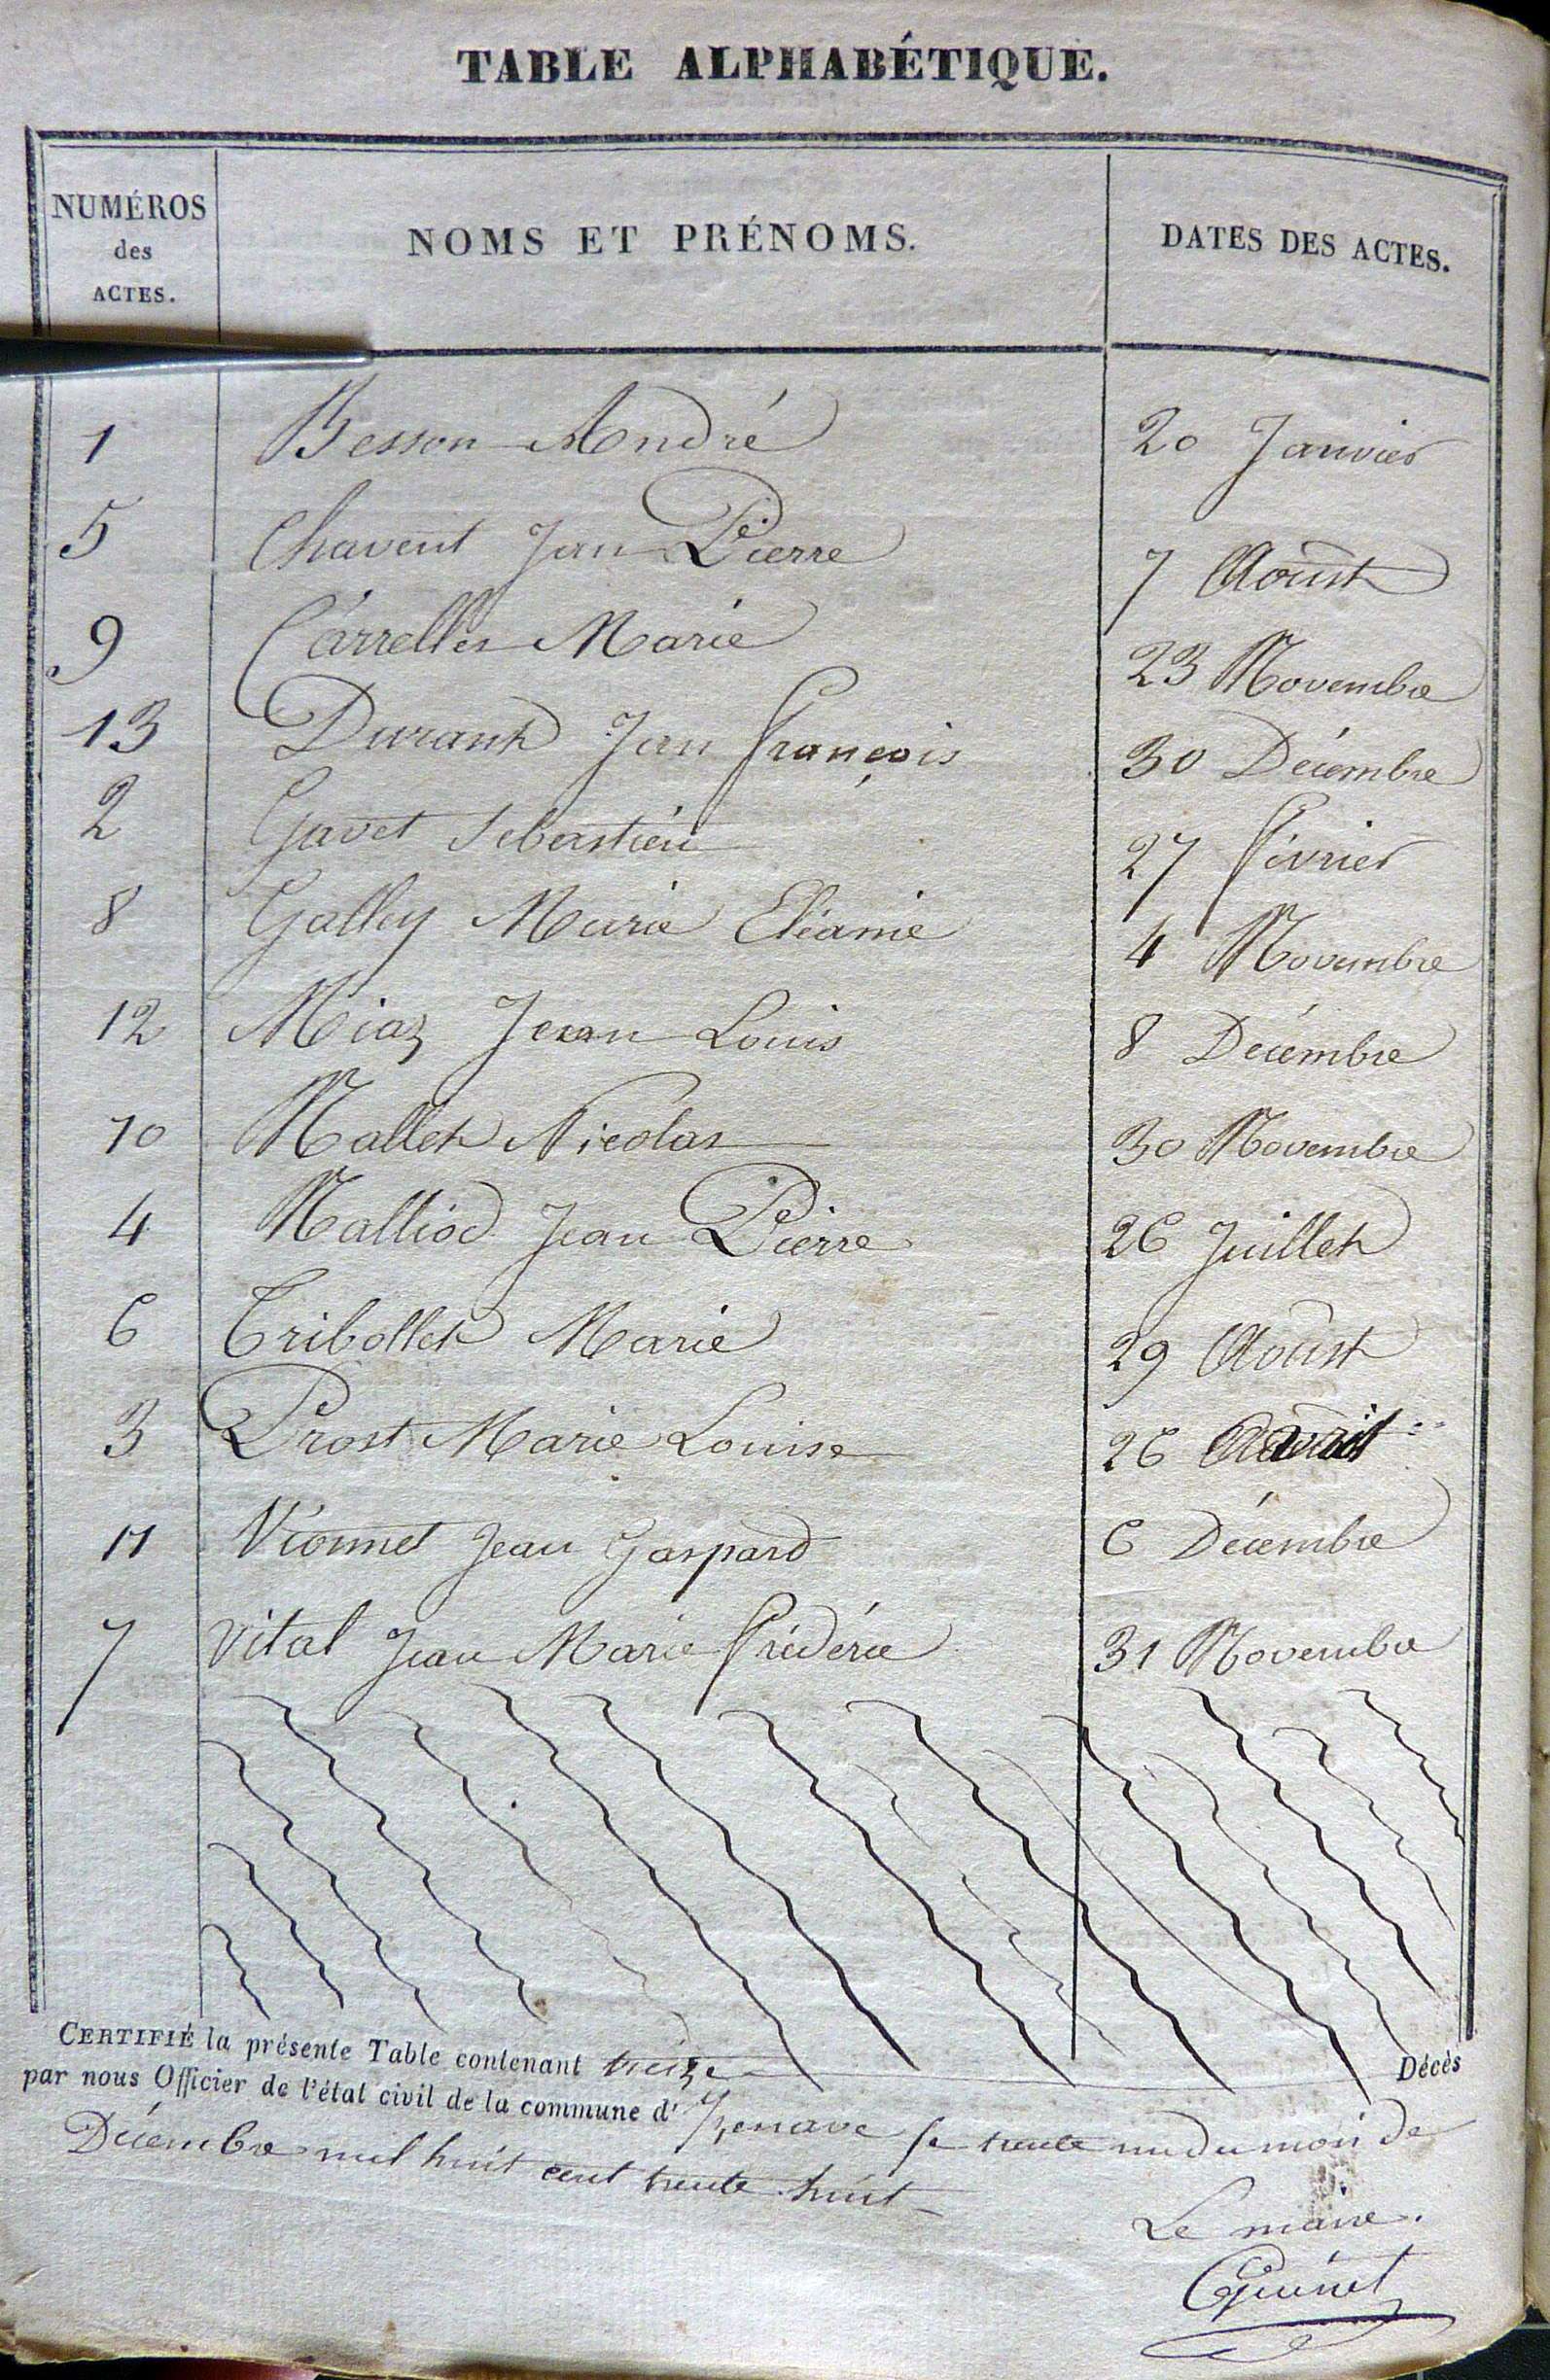 TABLE ALPHABÉTIQUE.
NUMÉROS
des
ACTES.
NOMS ET PRÉNOMS.
DATES DES ACTES.
1 Besson André 20 Janvier
5 Chavent Jean Pierre 7 Aoust
9 Carrellier Marie 23 Novembre
13 Durant Jean François 30 Décembre
2 Gavet Sebastien 27 février
8 Galley Marie 4 Novembre
12 Miaz Jean Louis 8 Décembre
10 Nallet Nicolas 30 Novembre
4 Nalliod Jean Pierre 26 Juillet
6 Tribollet Marie 29 Aoust
3 Prost Marie Louise 26 Avril
11 Vionnet Jean Gaspard 6 Décembre
7 Vital Jean Marie frédéric 31 Novembre
CERTIFIÉ la présente Table contenant treize Décès
par nous Officier de l'état civil de la commune d' Izenave le trente un du mois de
Décembre mil huit cent trente huit
Le maire.
Guinet